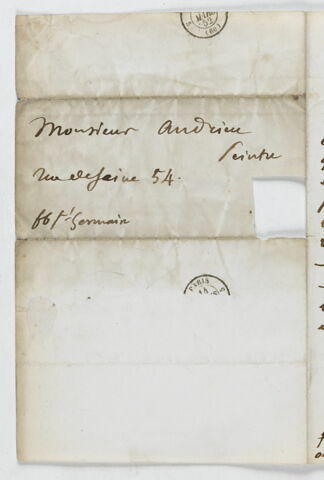 MARS
52
(60)
Monsieur Andrieu
Peintre
Rue de Seine 54.
fbg St Germain
PARIS